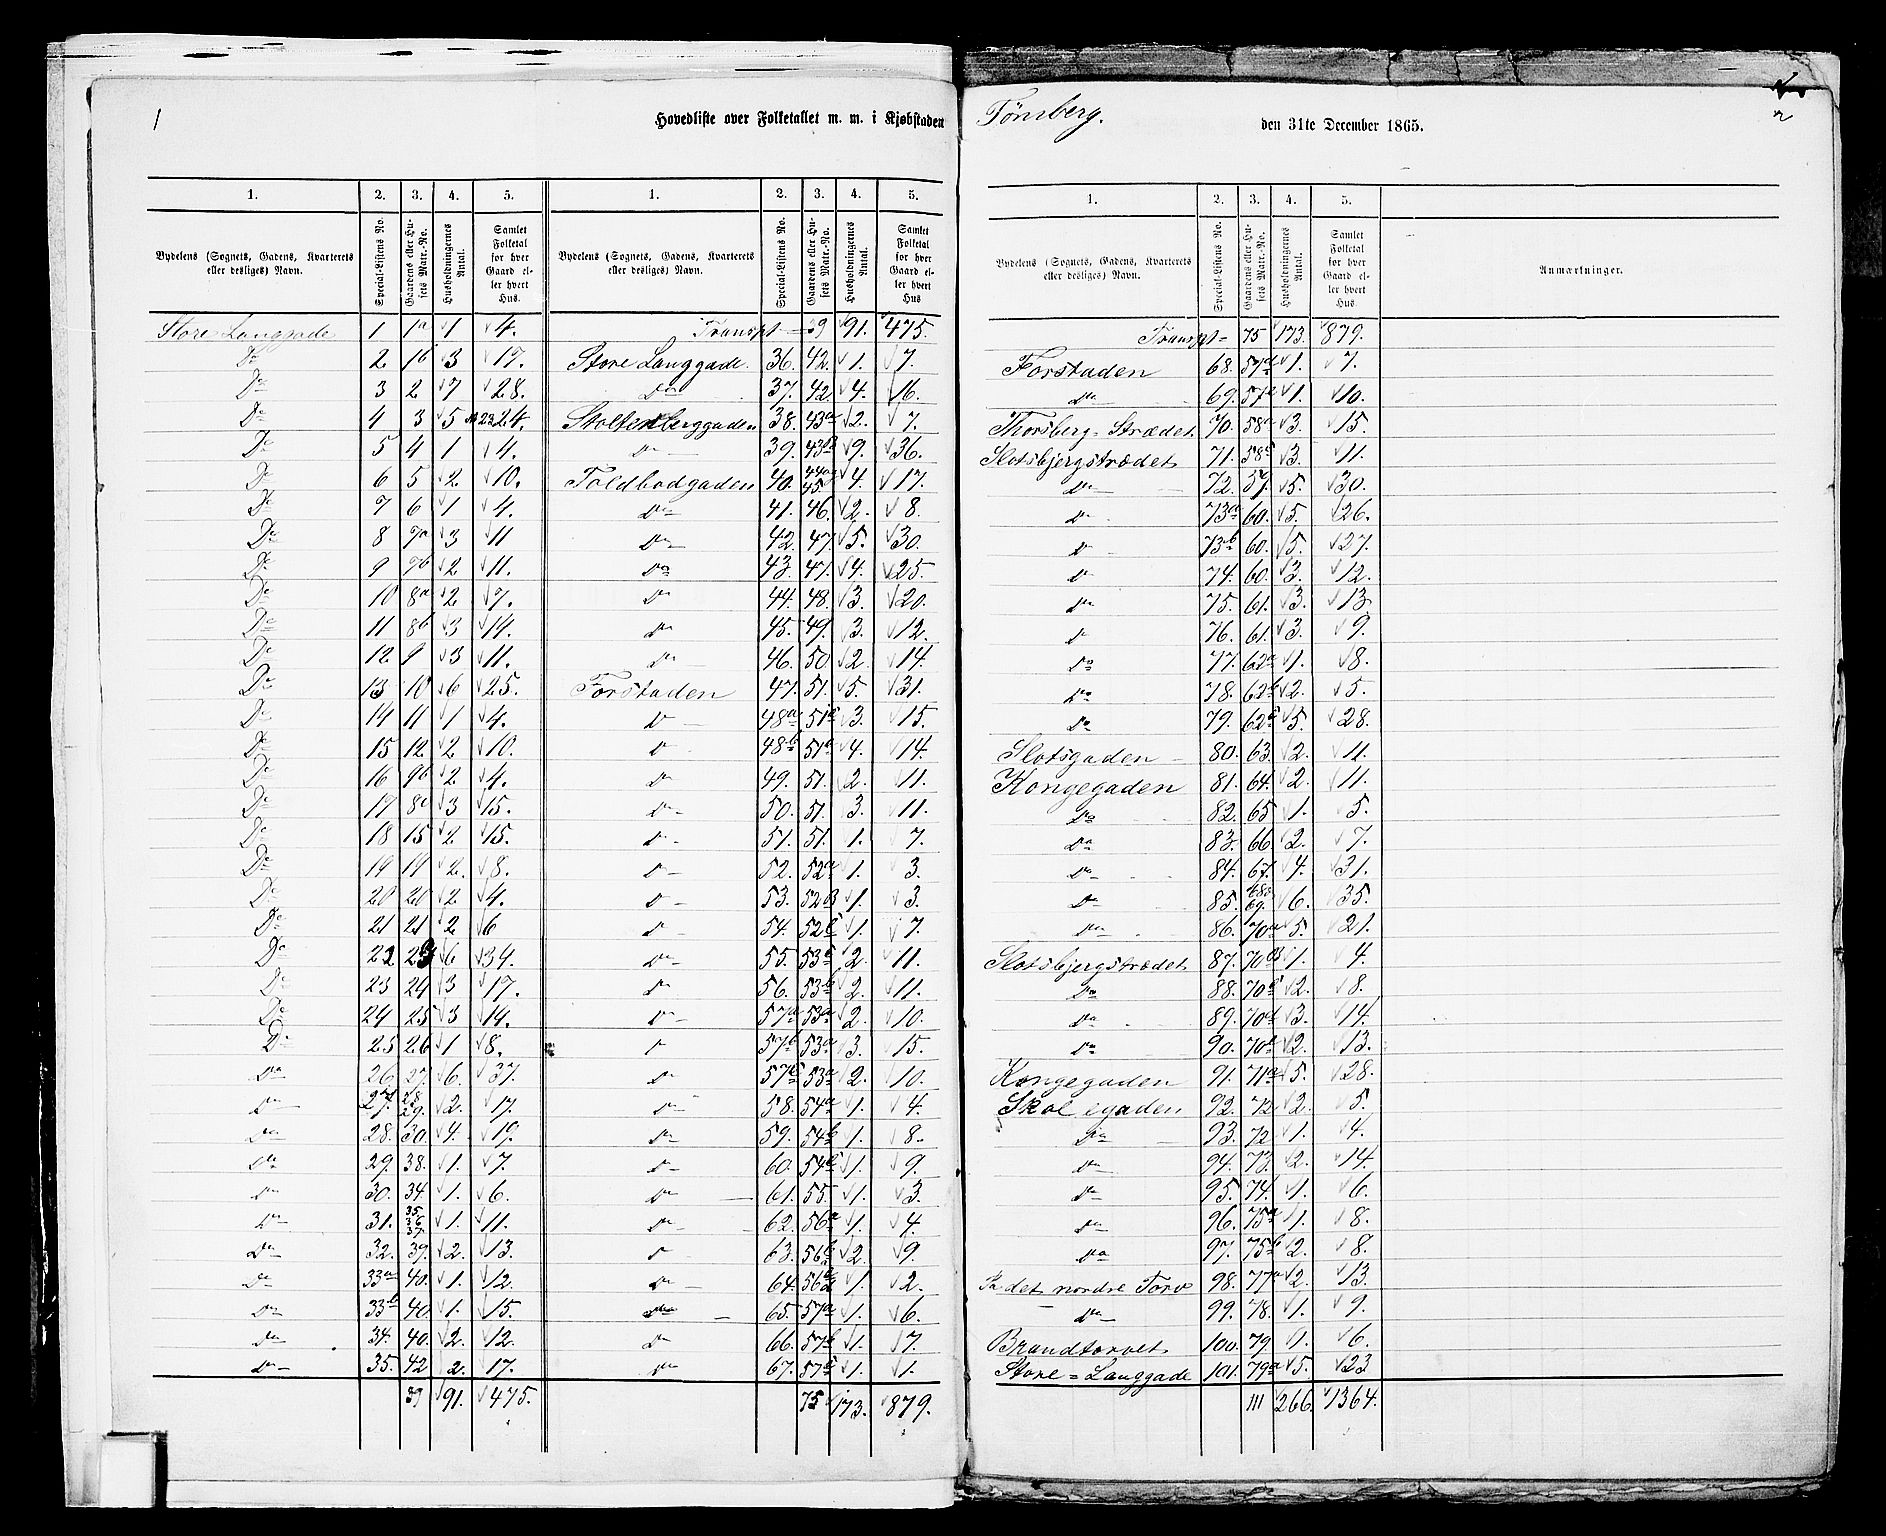 1
Hovedliste over Folketallet m. m. i Kjøbstaden Tönsberg. den 31te December 1865.
2
1. 2. 3. 4. 5.
Bydelens (Sognets, Gadens, Kvarterets eller desliges) Navn. Special-Listens No. Gaardens eller Husets Matr.-No. Husholdningernes Antal. Samlet Folketal for hver Gaard eller hvert Hus.
Store Langgade 1 1a 1 4.
Do 2 1b 3 17.
Do 3 2 7 28.
Do 4 3 5 23 24.
Do 5 4 1 4.
Do 6 5 2 10.
Do 7 6 1 4.
Do 8 7a 3 11
Do 9 7b 2 11.
Do 10 8a 2 7.
Do 11 8b 3 14.
Do 12 9 3 11.
Do 13 10 6 25.
Do 14 11 1 4.
Do 15 12 2 10.
Do 16 9b 2 4.
Do 17 8c 3 15.
Do 18 15 2 15.
Do 19 19 2. 8.
Do 20 20 2 4.
Do 21 21 2 6
Do 22 23 6 34.
Do 23 24 3 17.
Do 24 25 3 14.
Do 25 26 1 8.
Do 26. 27. 6. 37.
Do 27. 28. 29. 2. 17.
Do 28. 30. 4. 19.
Do 29. 38. 1. 7.
Do 30. 34. 1. 6.
Do 31. 35. 36. 37. 1. 11.
Do 32. 39. 2. 13.
Do 33a 40. 1. 12.
Do 33b 40. 1. 15.
Do 34. 40. 2. 12.
Do 35. 42 2. 17.
39 91. 475.
1. 2. 3. 4. 5.
Bydelens (Sognets, Gadens, Kvarterets eller desliges) Navn. Special-Listens No. Gaardens eller Husets Matr.-No. Husholdningernes Antal. Samlet Folketal for hver Gaard eller hvert Hus
Transpt 39 91. 475.
Store Langgade. 36. 42. 1. 7.
Do 37. 42. 4. 16.
Stoltenberggaden 38. 43a 2. 7.
Do 39. 43b 9. 36.
Toldbodgaden 40. 44a 45. 4. 17.
Do 41. 46. 2. 8.
Do 42. 47. 5. 30.
Do 43. 47. 4. 25.
Do 44. 48. 3. 20.
Do 45. 49. 3. 12.
Do 46. 50. 2. 14.
Forstaden 47. 51. 5. 31.
Do 48a 51a 3. 15.
Do 48b 51a 4. 14.
Do 49. 51. 2. 11.
Do 50. 51. 3. 11.
Do 51. 51. 1. 7.
Do 52. 52a 1. 3.
Do 53. 52b 1. 3.
Do 54. 52c 1. 7.
Do 55. 53a 2. 11.
Do 56. 53b 2. 11.
Do 57a 53a 2. 10.
Do 57b 53a 3. 15.
Do 57c 53a 2. 10.
Do 58. 54a 1. 4.
Do 59. 54b 1. 8.
Do 60. 54c 1. 9.
Do 61. 55. 1. 3.
Do 62. 56a 1. 4.
Do 63. 56b 2. 9.
Do 64. 56c 1. 2.
Do 65. 57a 1. 6.
Do 66. 57b 1. 7.
Do 67. 57c 1. 1.
75 173. 879.
1. 2. 3. 4. 5.
Bydelens (Sognets, Gadens, Kvarterets eller desliges) Navn. Special-Listens No. Gaardens eller Husets Matr.-No. Husholdningernes Antal. Samlet Folketal for hver Gaard eller hvert Hus. Anmærkninger.
Transpt 75 173. 879.
Forstaden 68. 57d 1. 7.
Do 69. 57e 1. 10.
Thorsberg-Strædet. 70. 58a 3. 15.
Slotsbjergstrædet 71. 58b 3. 11.
Do 72. 57. 5. 30.
Do 73a 60. 5. 26.
Do 73b 60. 5. 27.
Do 74. 60. 3. 12.
Do 75. 61. 3. 13.
Do 76. 61. 3. 9.
Do 77. 62a 1. 8.
Do 78. 62b 2. 5.
Do 79. 62c 5. 28.
Slotsgaden 80. 63. 2. 11.
Kongegaden 81. 64. 2. 11.
Do 82. 65 1. 5.
Do 83. 66 2. 7.
Do 84. 67. 4. 31.
Do 85. 68 69. 6. 35.
Do 86. 70a 5. 21.
Slotsbjergstrædet 87. 70b 1. 4.
Do 88. 70c 2. 8.
Do 89. 70d 3. 14.
Do 90. 70e 2. 13.
Kongegaden 91. 71a 5. 28.
Skolegaden 92. 72 2. 5.
Do 93. 72 1. 4.
Do 94. 73. 2. 14.
Do 95. 74. 1. 6.
Do 96. 75a 1. 8.
Do 97. 75b 2. 8.
Pa det nordre Torv 98. 77a 2. 13.
Do 99. 78. 1. 9.
Brandtorvet 100. 79. 1. 6.
Store=Langgade 101. 79a 5. 23
111 266. 1364.